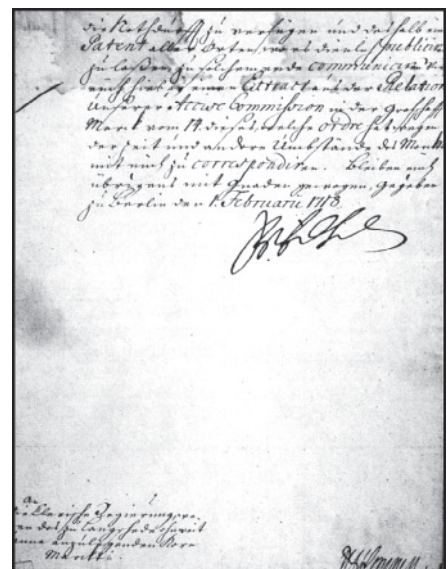 die Nothdurfft zu verfügen und deshalb ein
Patent aller Orten, wo es dienlich publiciren
zu lassen, zu
communiciren Wir
euch hiebey einen Extract aus der Relation
Unserer Accise Commission in der Grafschafft
Marck vom 14. dieses, welche ordre hat wegen
der Zeit und andere Umbstände des Marckts
mit euch zu correspondiren. Bleiben euch
übrigens mit Gnaden gewogen. Gegeben
zu Berlin den 1. Februarii
An
die Clevische Regierung
des zu Langschede ohnweit
anzulegenden Korn
Marckts.